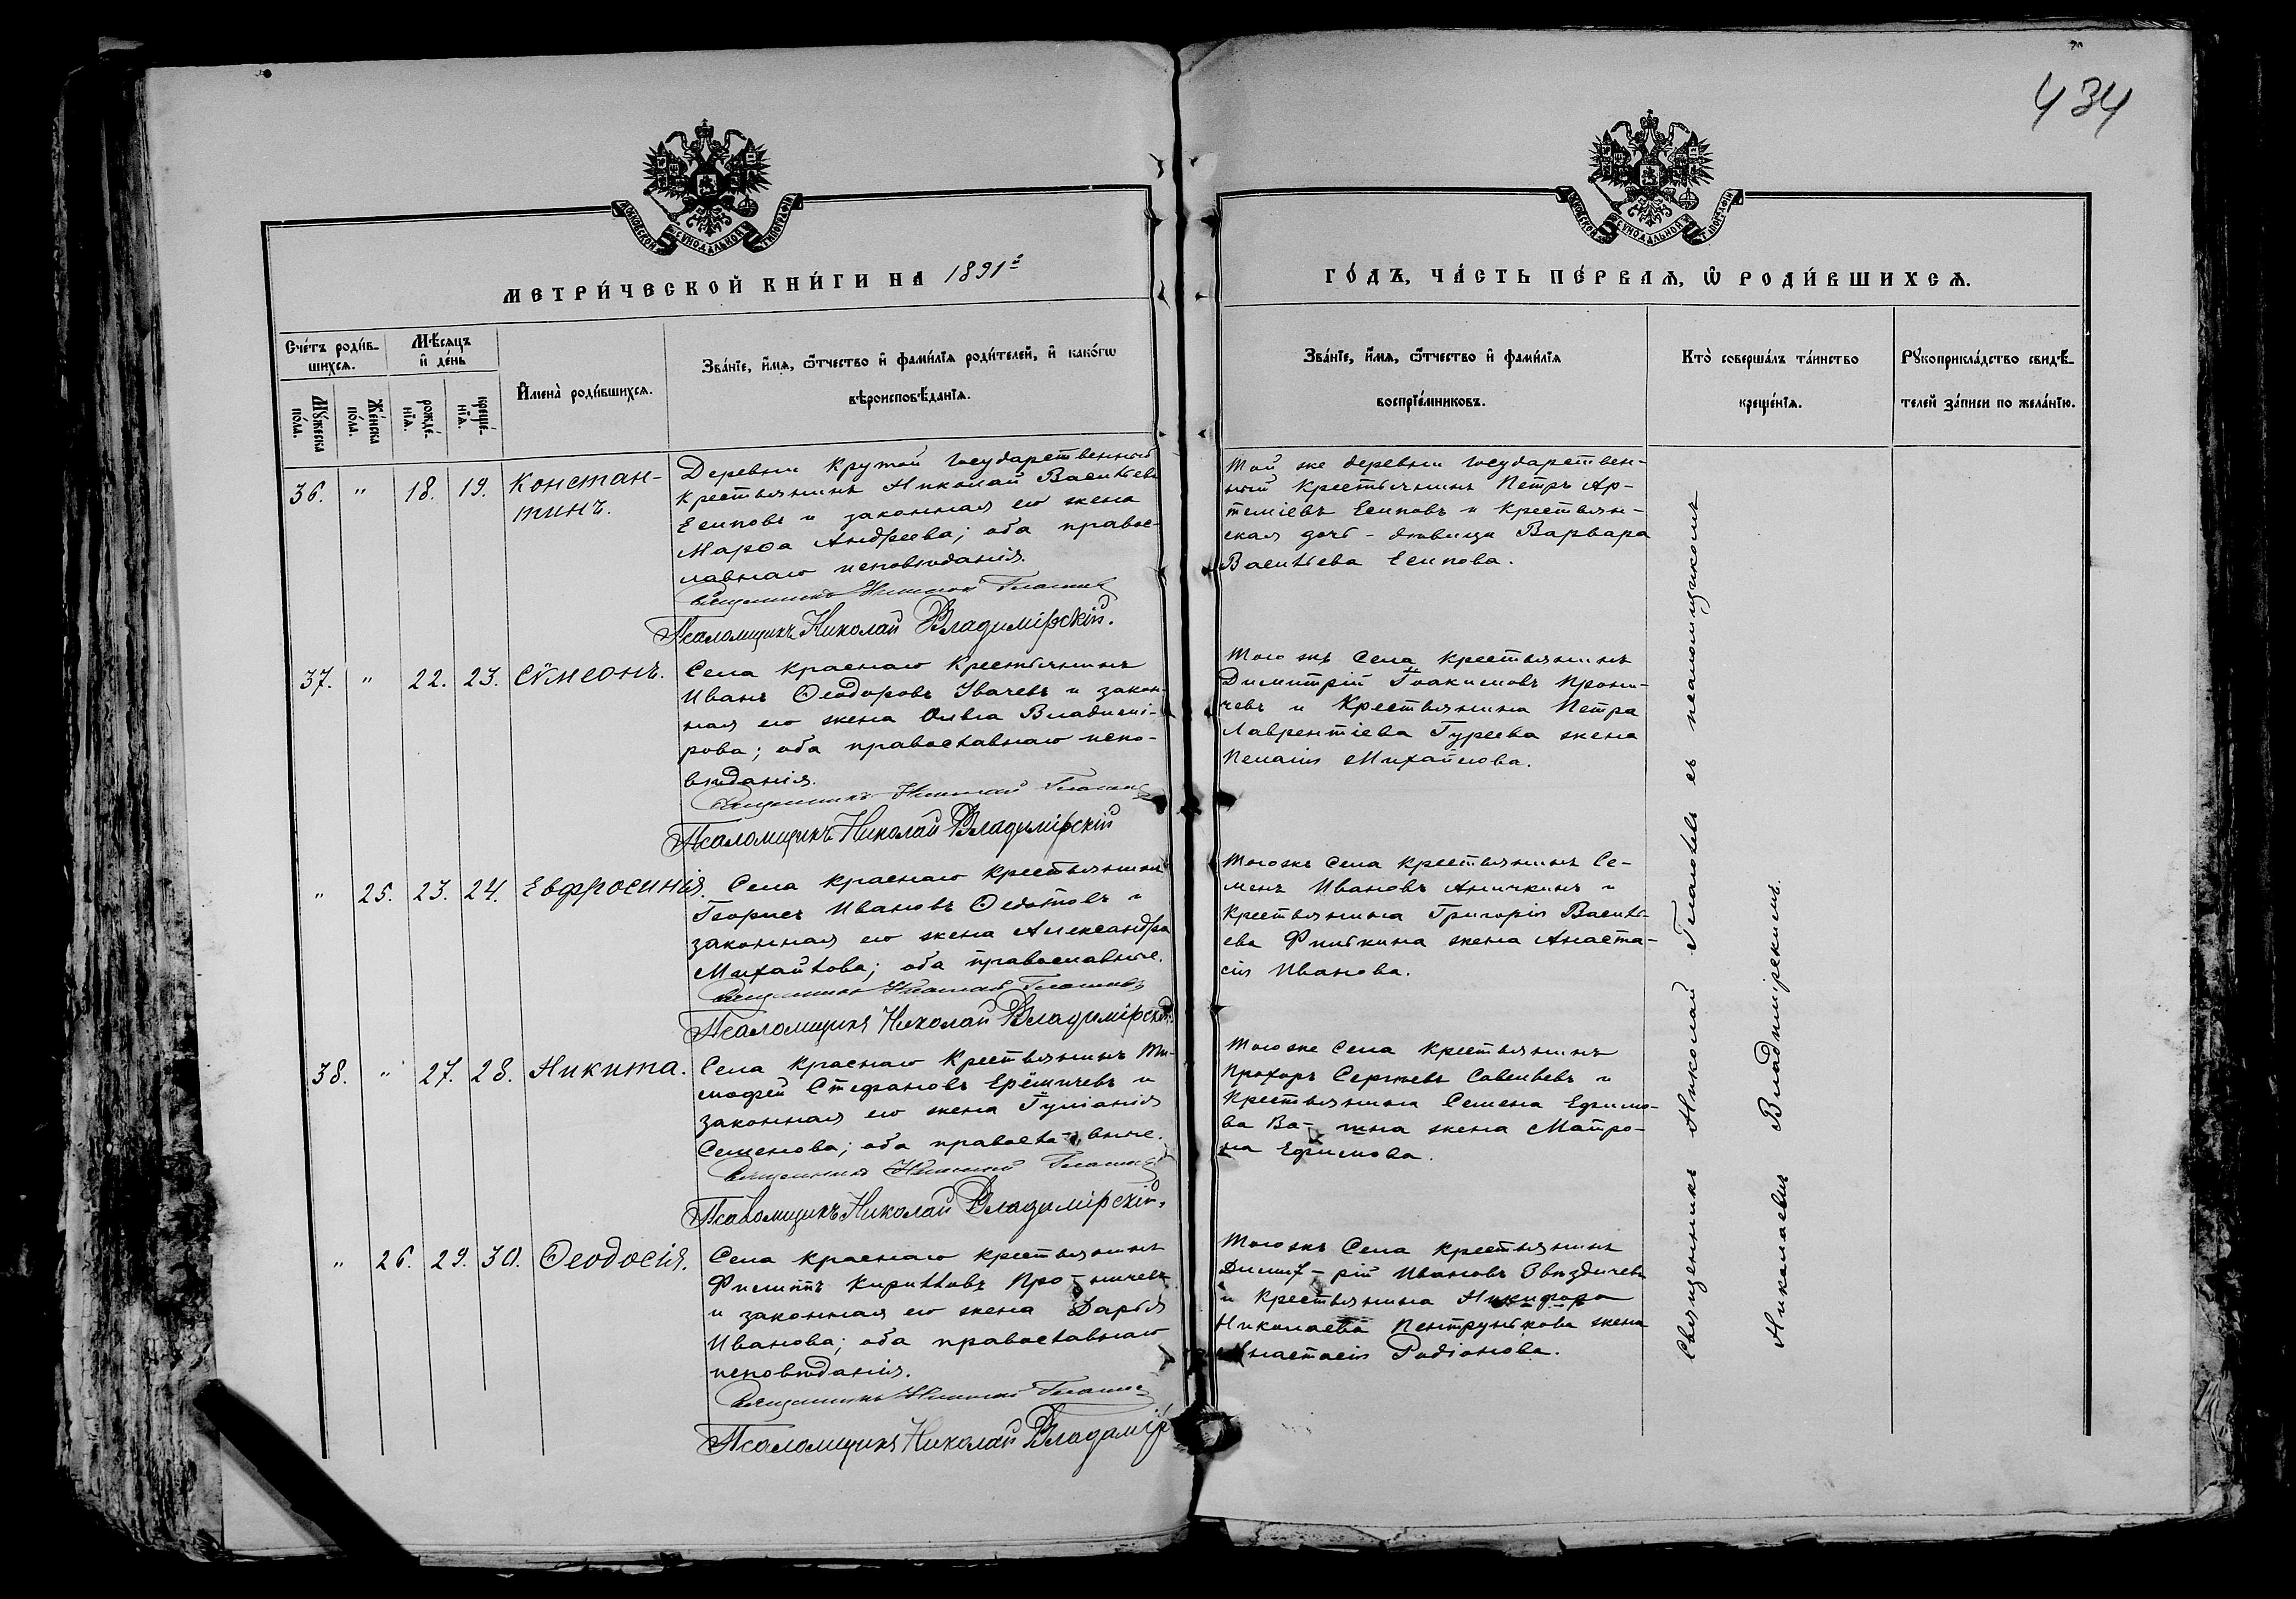 434
МОСКОВСКОЙ СѴНОДАЛЬНОЙ ТѴПОГРАФІИ
МОСКОВСКОЙ СѴНОДАЛЬНОЙ ТѴПОГРАФІИ
МЕТРИ́ЧЕСКОЙ КНИ́ГИ НА 1891г.
ГО́ДЪ, ЧА́СТЬ ПЕ́РВАѦ, Ѿ РОДИ́ВШИХСѦ.
Сче́тъ роди́в-
шихсѧ.
Мꙋ́жеска
по́ла.
Же́нска
по́ла.
Мѣ́сѧцъ
и҆ де́нь
рожде́-
нїѧ.
креще́-
нїѧ.
И҆мена̀ роди́вшихсѧ.
Зва́нїе, и҆́мѧ, ѻ҆́тчество и҆ фами́лїѧ роди́телей, и҆ како́гѡ
вѣроисповѣ́данїѧ.
Зва́нїе, и҆́мѧ, ѻ҆́тчество и҆ фами́лїѧ
воспрїе́мниковъ.
Кто̀ соверша́лъ та́инство
креще́нїѧ.
Рꙋкоприкла́дство свидѣ́-
телей за́писи по жела́нїю.
36. " 18. 19. Констан-
тинъ.
Деревни Крутой государственный
крестьянинъ Николай Васильевъ
Есиповъ и законная его жена
Марѳа Андреева; оба правос-
лавнаго исповѣданія.
Священникъ Николай
Псаломщикъ Николай Владимірскій.
Той же деревни государствен-
ный крестьянинъ Петръ Ар-
теміевъ Есиповъ и крестьян-
ская дочь - дѣвица Варвара
Васильева Есипова.
37. " 22. 23. Сѵмеонъ.
Села Краснаго крестьянинъ
Иванъ Ѳеодоровъ Ивачевъ и закон-
ная его жена Ольга Владимі-
рова; оба православнаго испо-
вѣданія.
Священникъ Николай
Псаломщикъ Николай Владимірскій
Того же села крестьянинъ
Димитрій Іоакимовъ Прони-
чевъ и крестьянина Петра
Лаврентіева Гуреева жена
Пелагія Михайлова.
" 25. 23. 24. Евфросинія.
Села Краснаго крестьянинъ
Георгій Ивановъ Ѳедотовъ и
законная его жена Александра
Михайлова; оба православные.
Священникъ Николай
Псаломщикъ Николай Владимірскій.
Того же села крестьянинъ Се-
менъ Ивановъ Аничкинъ и
крестьянина Григорія Василь-
ева Филькина жена Анаста-
сія Иванова.
38. " 27. 28. Никита.
Села Краснаго крестьянинъ Ти-
мофей Стефановъ Ерёмичевъ и
законная его жена Іуліанія
Семенова; оба правосла-вные.
Священникъ Николай
Псаломщикъ Николай Владимірскій.
Того же села крестьянинъ
Прохоръ Сергѣевъ Савельевъ и
крестьянина Семена Ефимо-
ва жена Матро-
на Ефимова.
" 26. 29. 30. Ѳеодосія.
Села Краснаго крестьянинъ
Филиппъ Кирилловъ Про-ничевъ
и законная его жена Дарья
Иванова; оба православнаго
исповѣданія.
Священникъ Николай
Псаломщикъ Николай Владимір
Того же села крестьянинъ
Димит-рій Ивановъ Звѣздичевъ
и крестьянина Никифора
Николаева жена
Анастасія Родіонова.
Священникъ Николай съ псаломщикомъ
Николаемъ Владимірскимъ.